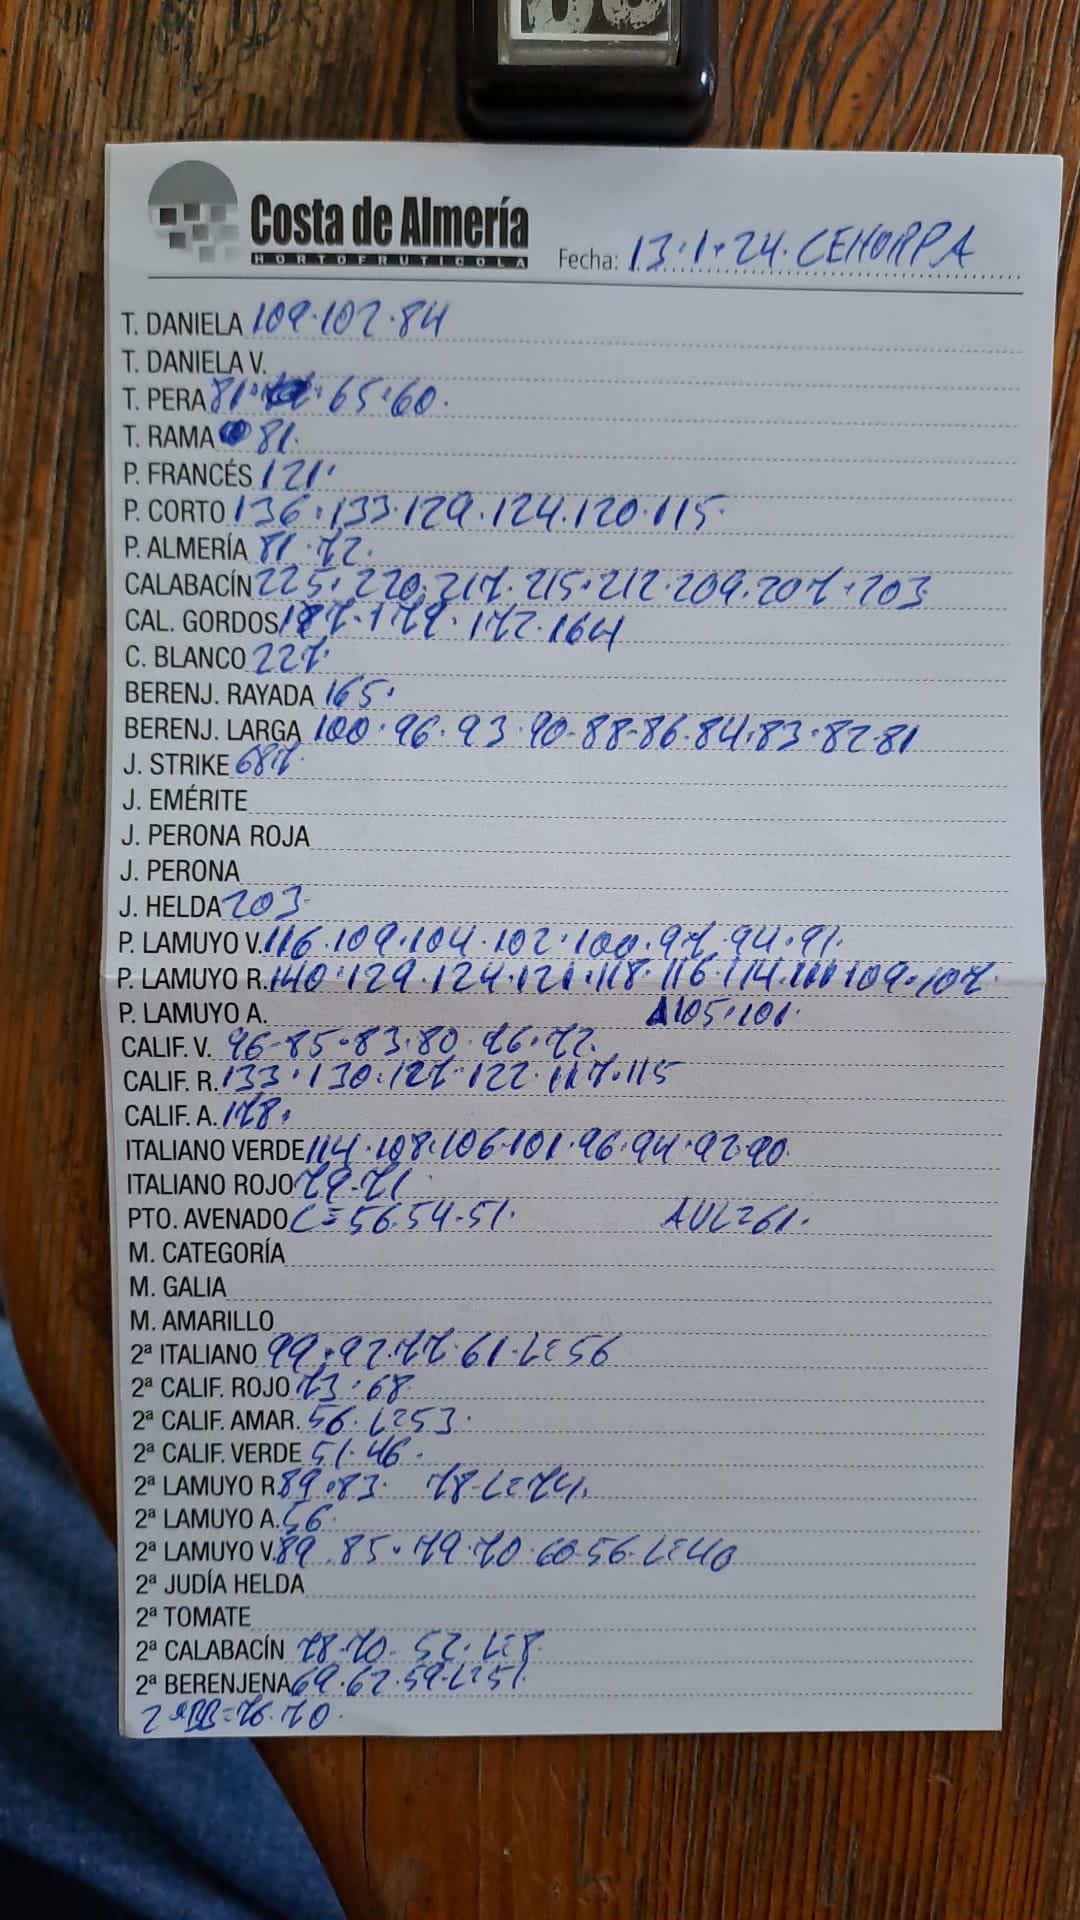 Costa de Almería
HORTOFRUTICOLA
Fecha: 13.1.24. CEHORPA
T. DANIELA 109.102.84
T. DANIELA V.
T. PERA 81. . 65.60.
T. RAMA 81.
P. FRANCÉS 121.
P. CORTO 136.133.129.124.120.115.
P. ALMERÍA 81.72.
CALABACÍN 225.220.217.215.212.209.207.203
CAL. GORDOS 187.179.172.164
C. BLANCO 227.
BERENJ. RAYADA 165.
BERENJ. LARGA 100.96.93.90-88-86.84.83.82.81
J. STRIKE 687.
J. EMÉRITE
J. PERONA ROJA
J. PERONA
J. HELDA 203
P. LAMUYO V. 116.109.104.102.100.97.94.91.
P. LAMUYO R. 140.129.124.121.118.116.114.111.109.107.
P. LAMUYO A. 105.101.
CALIF. V. 96-85.83.80.76.72.
CALIF. R. 133.130.127.122.117.115
CALIF. A. 178.
ITALIANO VERDE 114.108.106.101.96.94.92.90.
ITALIANO ROJO 79-71
PTO. AVENADO C=56.54.51. AVL=61.
M. CATEGORÍA
M. GALIA
M. AMARILLO
2ª ITALIANO 99.92.77.61.L=56
2ª CALIF. ROJO 73.68.
2ª CALIF. AMAR. 56.L=53.
2ª CALIF. VERDE 51.46.
2ª LAMUYO R. 89.83. 78-L=74.
2ª LAMUYO A. 56.
2ª LAMUYO V. 89.85.79.70.60-56.L=40
2ª JUDÍA HELDA
2ª TOMATE
2ª CALABACÍN 78.70. 52.L=8.
2ª BERENJENA 69.62.59.L=51.
2ªBB=76.70.